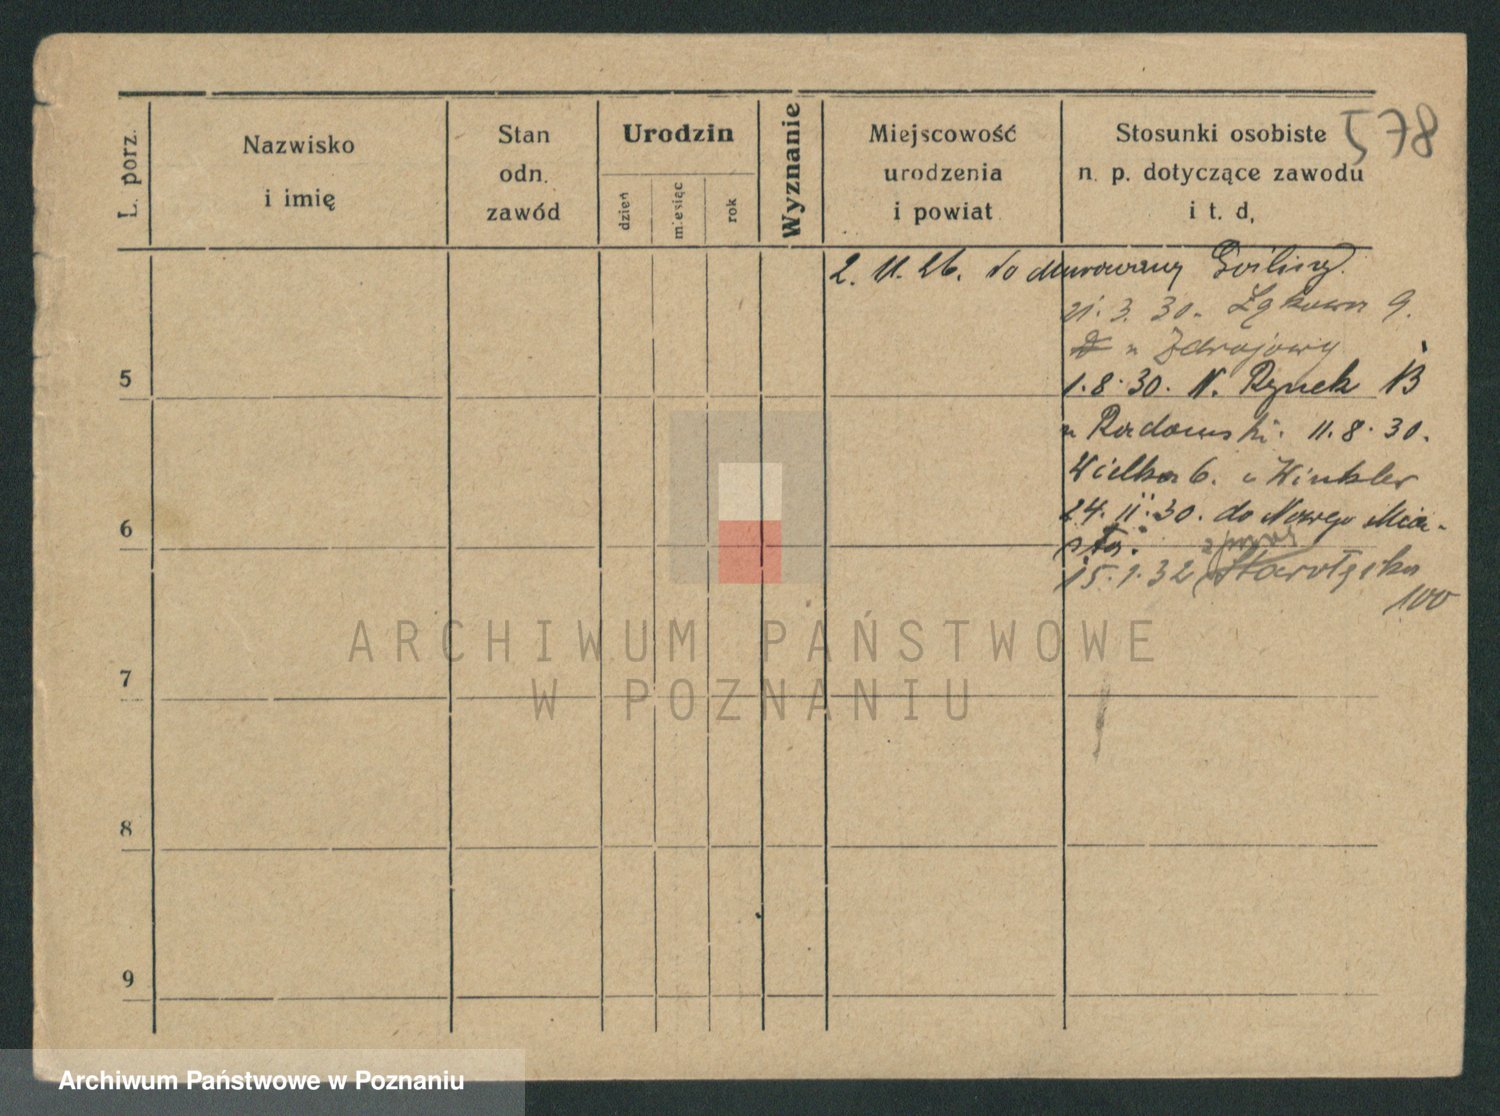 578
L. porz.
Nazwisko
i imię
Stan
odn.
zawód
Urodzin
dzień
miesiąc
rok
Wyznanie
Miejscowość
urodzenia
i powiat
Stosunki osobiste
n. p. dotyczące zawodu
i t. d.
2. 11. 26. do Murowany Gośliny.
21. 3. 30. Łąkowa 9.
u Zdrojowy
1. 8. 30. N. Rynek 13
u Radomski. 11. 8. 30.
Wielka 6. u Winkler
24. 11. 30. do Nowego Mia-
sta.
15. 1. 32 Starołęcka
100
5
6
7
8
9
ARCHIWUM PAŃSTWOWE
W POZNANIU
Archiwum Państwowe w Poznaniu